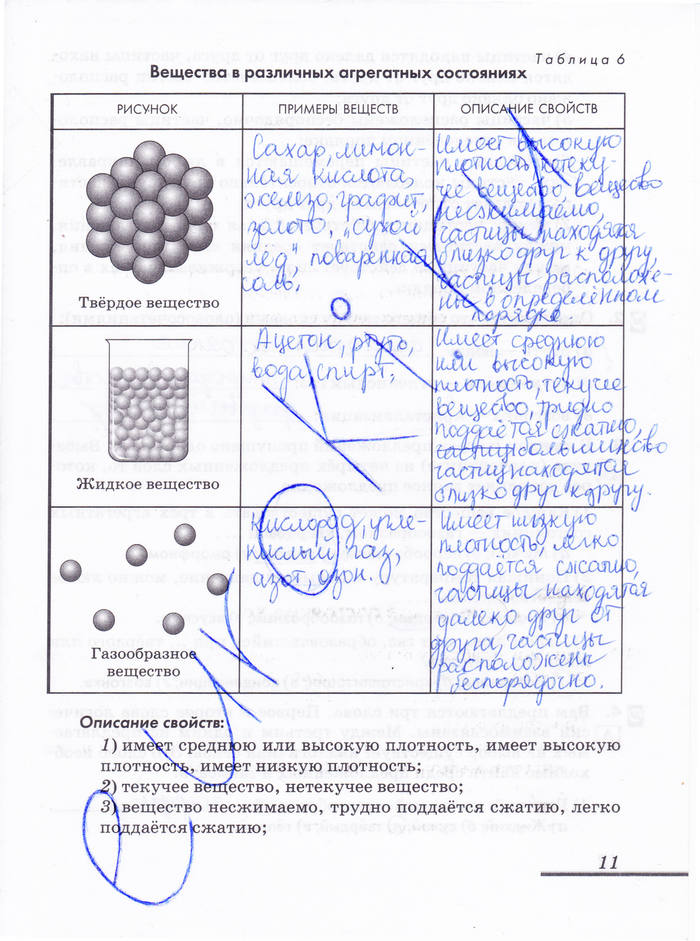 Таблица 6
Вещества в различных агрегатных состояниях
РИСУНОК
ПРИМЕРЫ ВЕЩЕСТВ
ОПИСАНИЕ СВОЙСТВ
Твёрдое вещество
Сахар, лимон-
ная кислота,
железо, графит,
золото, „сухой
лёд" поваренная
соль.
Имеет высокую
плотность, нетеку-
чее вещество, вещество
несжимаемо,
частицы находятся
близко друг к другу,
частицы расположе-
ны в определённом
порядке.
Жидкое вещество
Ацетон, ртуть,
вода, спирт.
Имеет среднюю
или высокую
плотность, текучее
вещество, трудно
поддаётся сжатию,
частиц большинство
частиц находятся
близко друг к другу.
Газообразное
вещество
Кислород, угле-
кислый газ,
азот, озон.
Имеет низкую
плотность, легко
поддаётся сжатию,
частицы находятся
далеко друг от
друга, частицы
расположены
беспорядочно.
Описание свойств:
1) имеет среднюю или высокую плотность, имеет высокую
плотность, имеет низкую плотность;
2) текучее вещество, нетекучее вещество;
3) вещество несжимаемо, трудно поддаётся сжатию, легко
поддаётся сжатию;
11